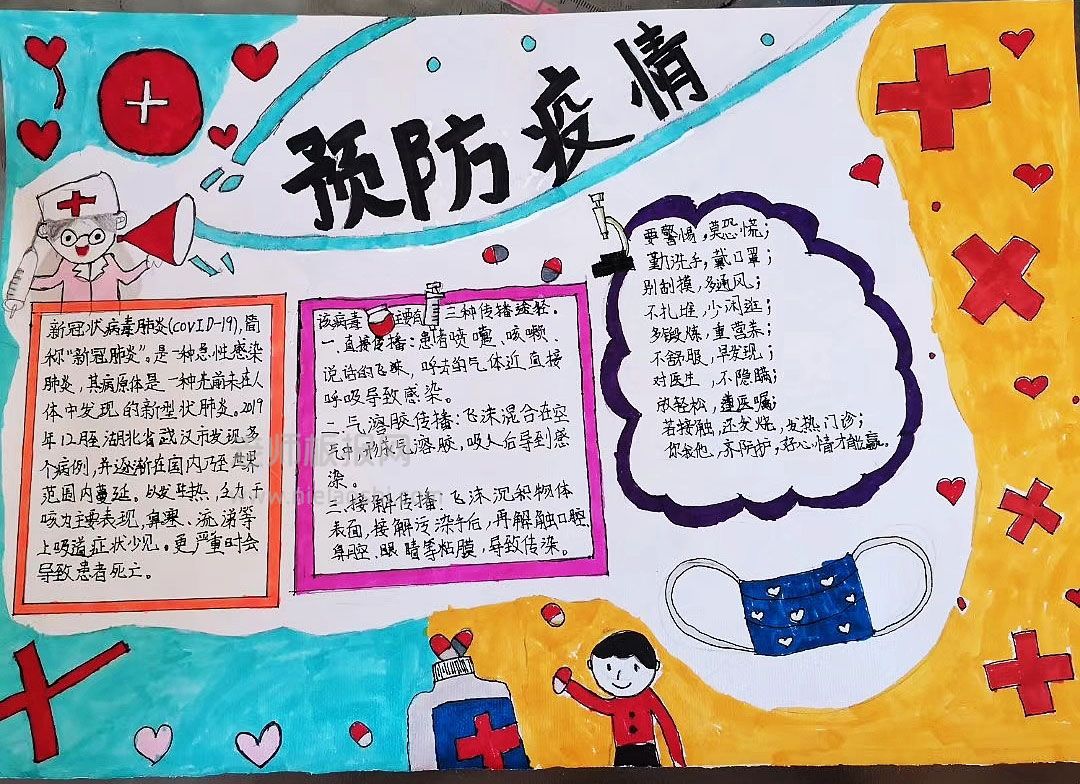 预防疫情
新冠状病毒肺炎(COVID-19),简
称"新冠肺炎"。是一种急性感染
肺炎,其病原体是一种先前未在人
体中发现的新型状肺炎。2019
年12月至湖北省武汉市发现多
个病例,并逐渐在国内乃至世界
范围内蔓延。以发热、乏力、干
咳为主要表现,鼻塞、流涕等
上吸道症状少见。更严重时会
导致患者死亡。
该病毒 主要有 三种传播途径。
一、直接传播:患者喷嚏、咳嗽、
说话的飞沫,呼出的气体近直接
呼吸导致感染。
二、气溶胶传播:飞沫混合在空
气中,形成气溶胶,吸入后导到感
染。
三、接触传播:飞沫沉积物体
表面,接触污染手后,再触口腔、
鼻腔、眼睛等粘膜,导致传染。
要警惕,莫恐慌;
勤洗手,戴口罩;
别刮摸,多通风;
不扎堆,少闲逛;
多锻炼,重营养;
不舒服,早发现;
对医生,不隐瞒;
放轻松,遵医嘱;
若接触,还发烧,发热门诊;
你我他,齐防护,好心情才能赢。
老师板报网